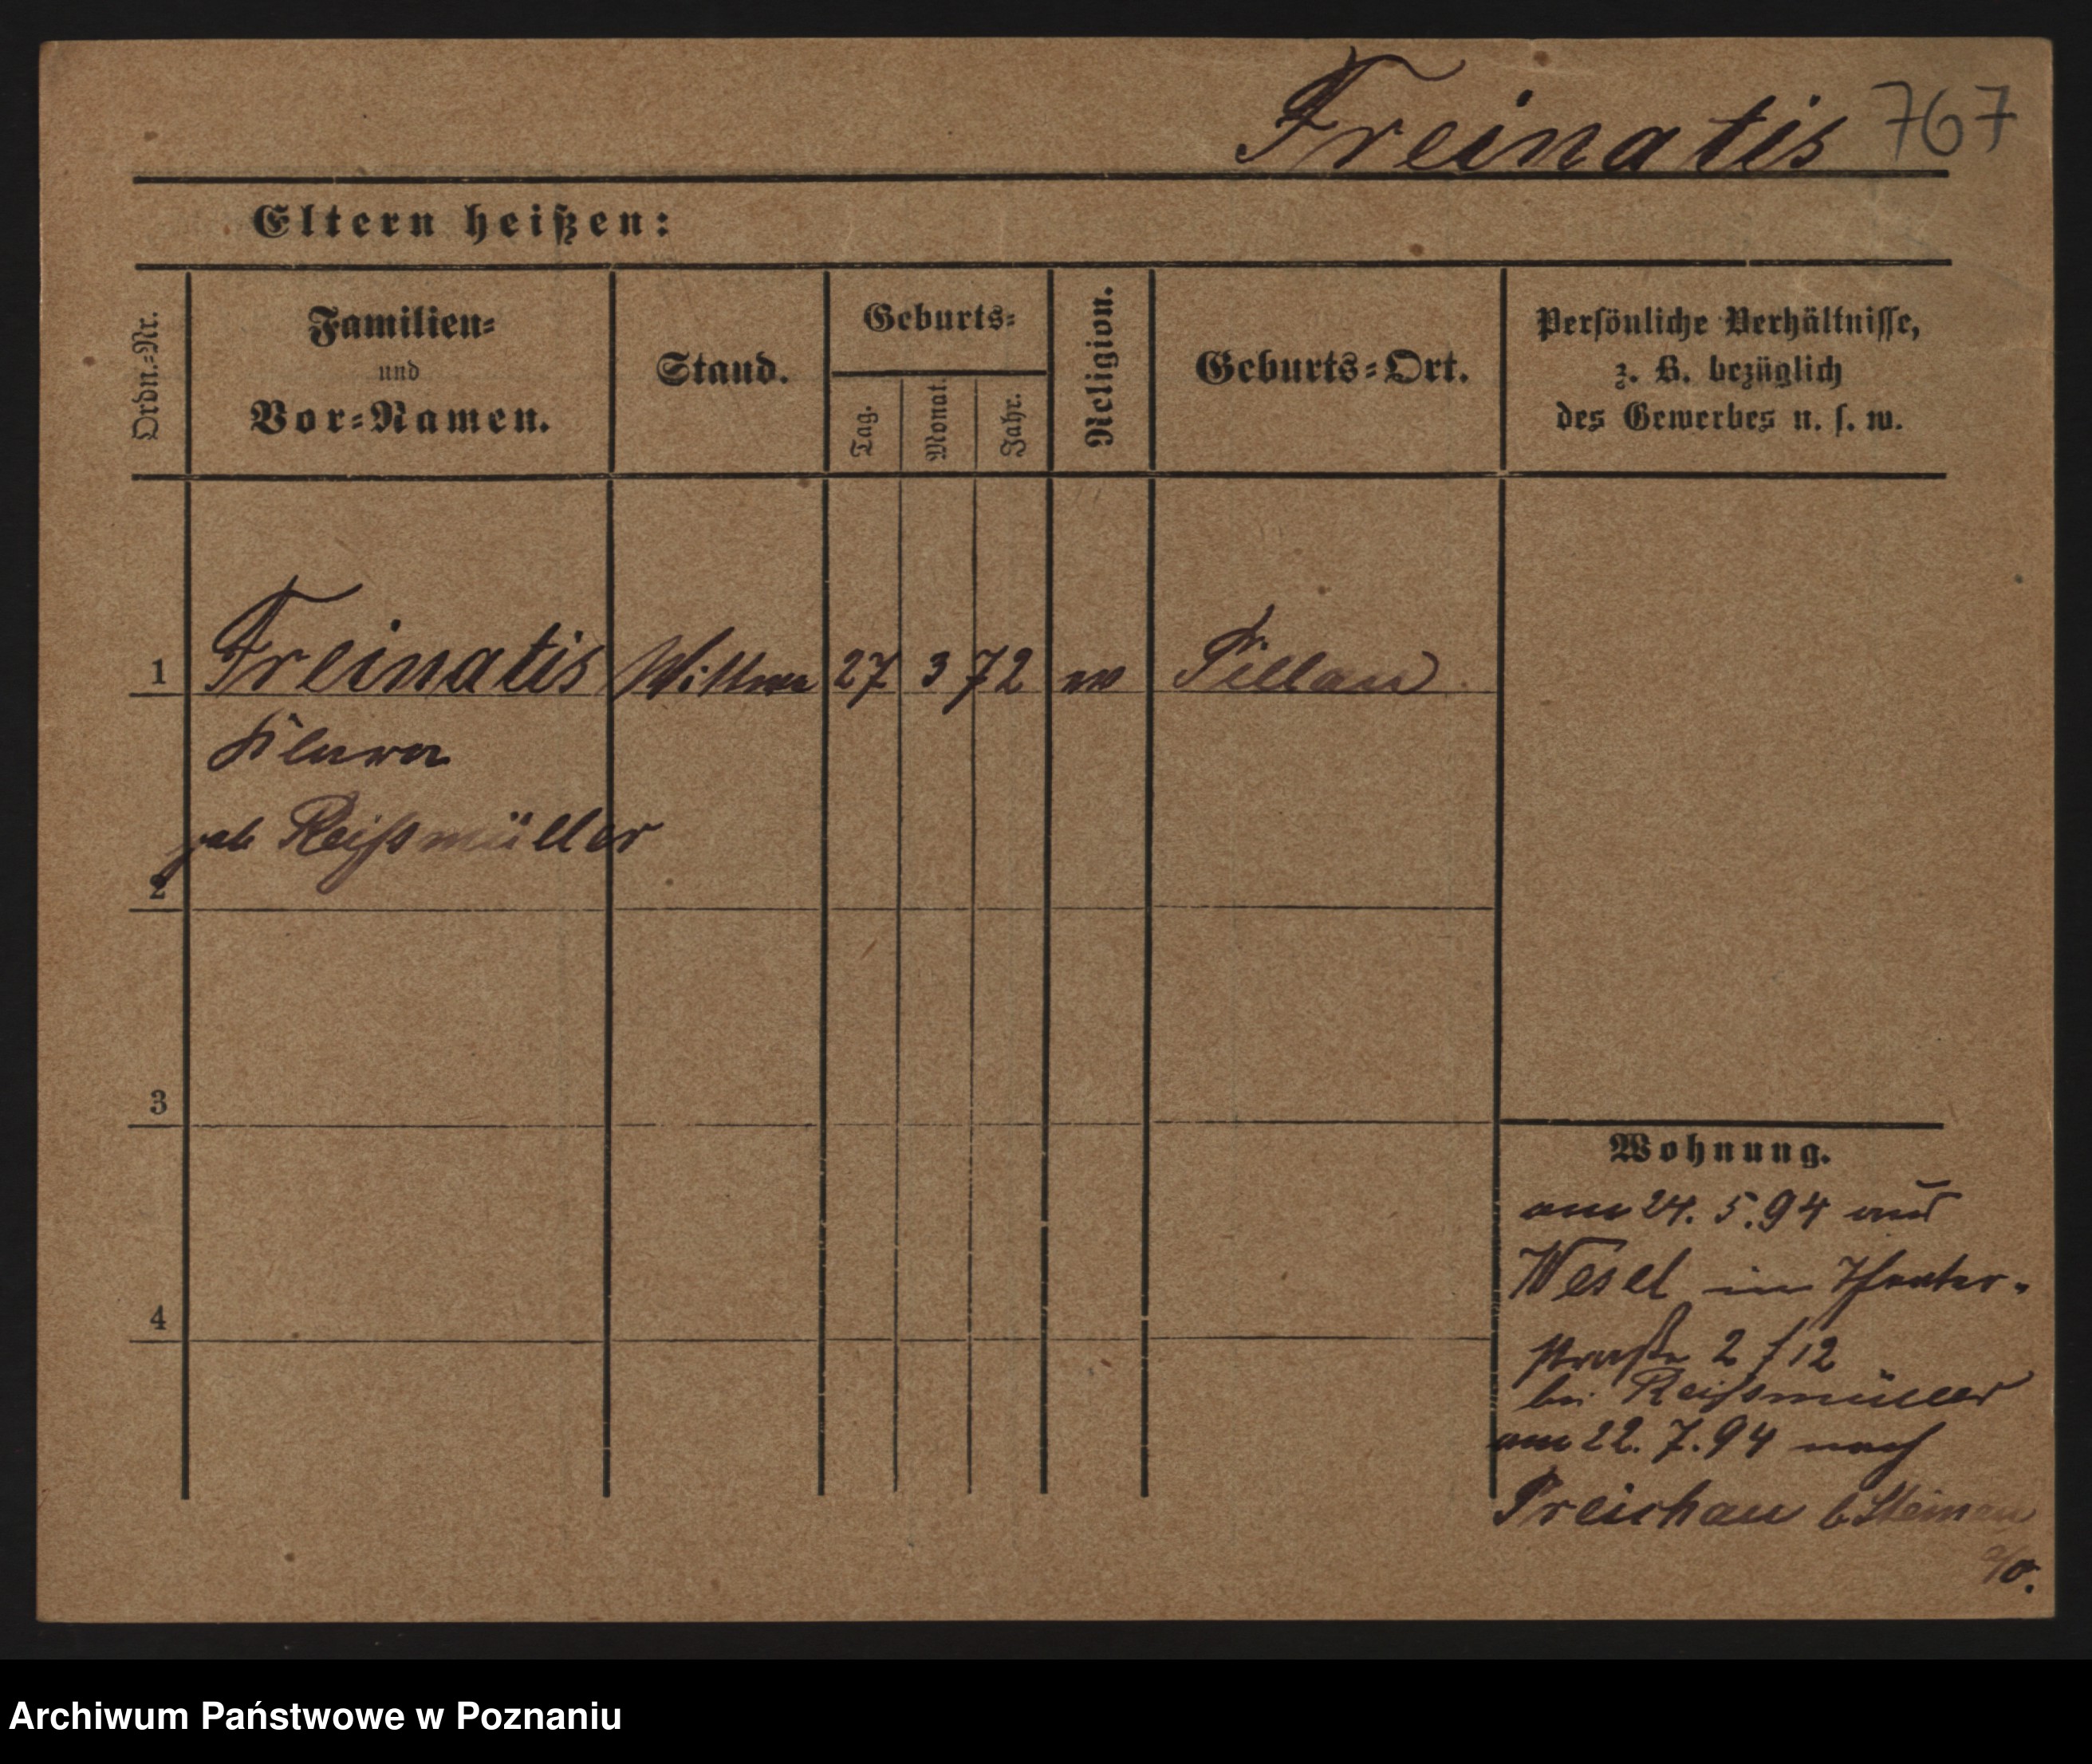 Freinatis 767
Eltern heißen:
Ordn.=Nr.
Familien=
und
Vor=Namen.
Stand.
Geburts=
Tag.
Monat.
Jahr.
Religion.
Geburts=Ort.
Persönliche Verhältnisse,
z. B. bezüglich
des Gewerbes u. s. w.
1 Freinatis Wittwe 27 3 72 Pillau
geb Reißmüller
2
3
4
Wohnung.
am 24. 5. 94 aus
Wesel in Theater-
straße 2 / 12
bei Reißmüller
am 22. 7. 94 nach
Preichau b Steinau
a/O.
Archiwum Państwowe w Poznaniu